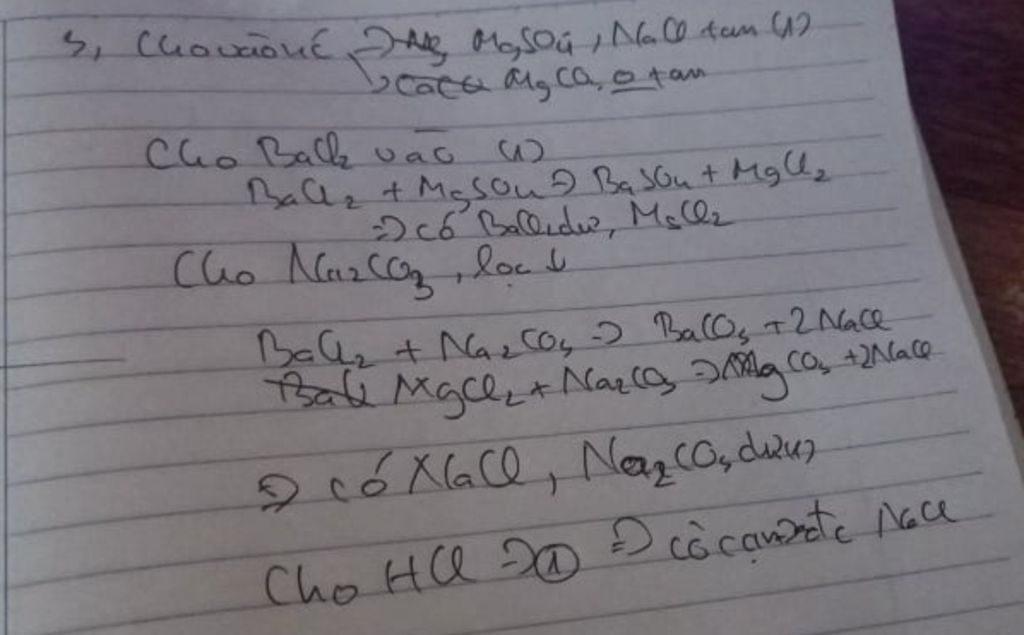 3, Cho vào nước => MgSO4, NaCl tan (1)
MgCO3 0 tan
Cho BaCl2 vào (1)
BaCl2 + MgSO4 => BaSO4 + MgCl2
=> có BaCl2 dư, MgCl2
Cho Na2CO3, lọc ↓
BaCl2 + Na2CO3 => BaCO3 + 2NaCl
MgCl2 + Na2CO3 => MgCO3 + 2NaCl
=> có NaCl, Na2CO3 dư
Cho HCl => ① => cô cạn NaCl